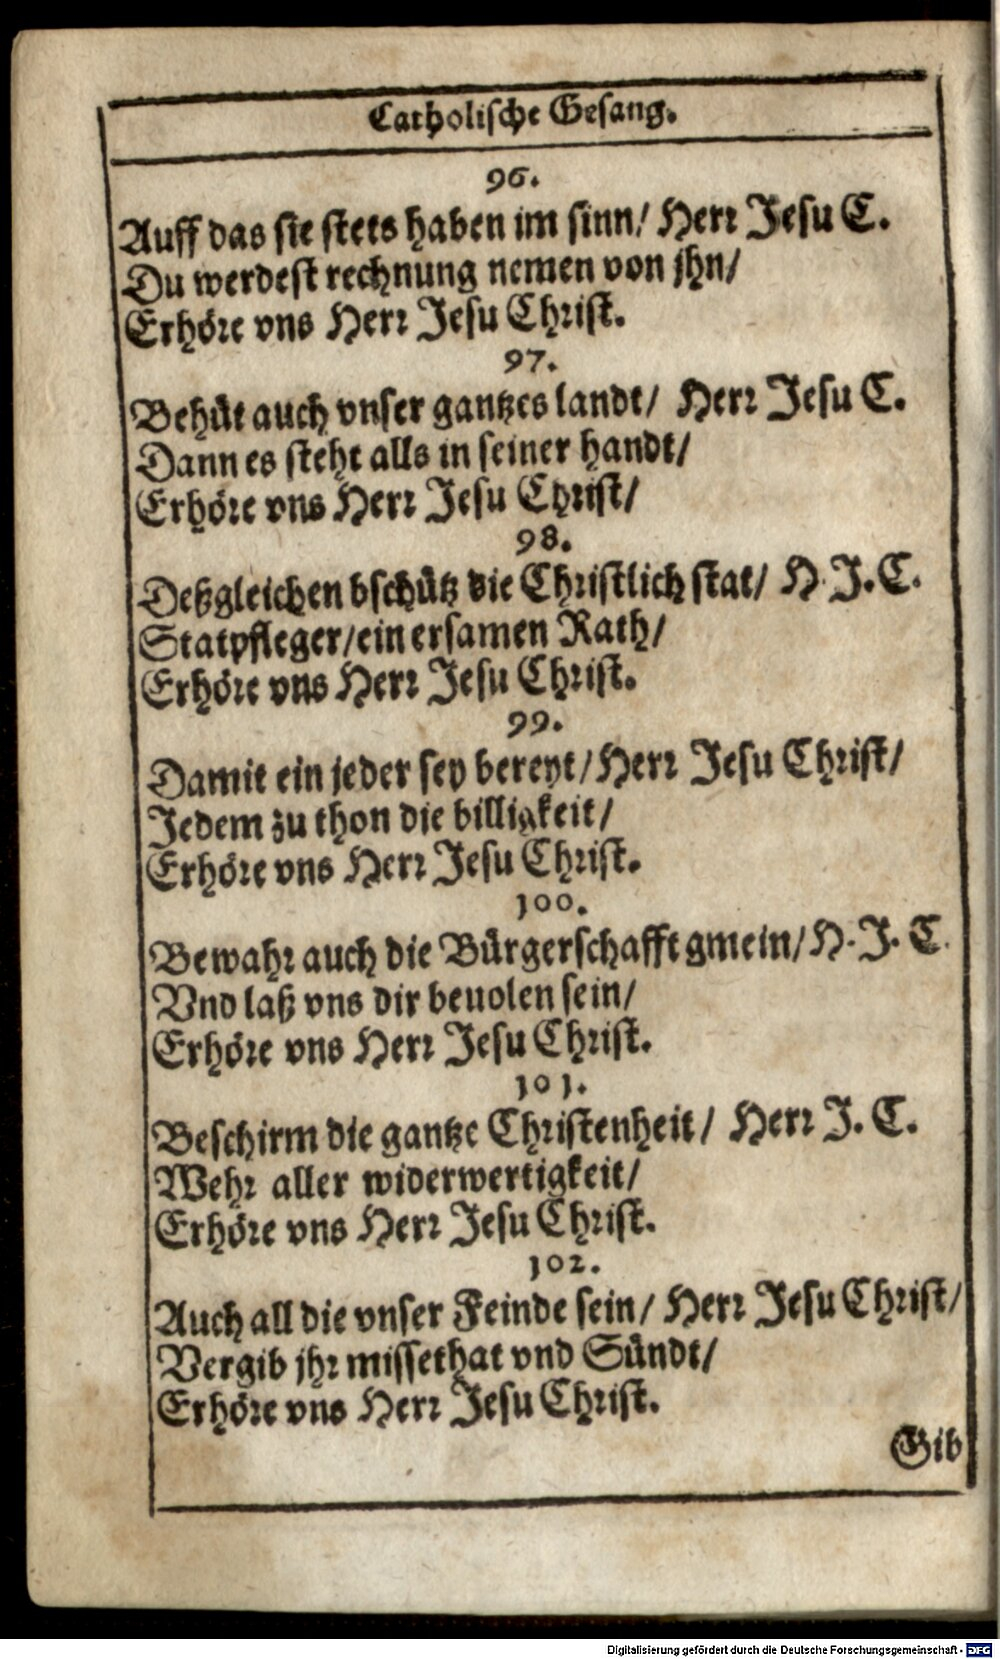 Catholische Gesang.
96.
Auff das sie stets haben im sinn/ Herr Jesu C.
Du werdest rechnung nemen von jhn/
Erhöre vns Herr Jesu Christ.
97.
Behüt auch vnser gantzes landt/ Herr Jesu C.
Dann es steht alls in seiner handt/
Erhöre vns Herr Jesu Christ/
98.
Deßgleichen bschütz die Christlich stat/ H. J. C.
Statpfleger/ein ersamen Rath/
Erhöre vns Herr Jesu Christ.
99.
Damit ein jeder sey bereyt/Herr Jesu Christ/
Jedem zu thon die billigkeit/
Erhöre vns Herr Jesu Christ.
100.
Bewahr auch die Bürgerschafft gmein/H. J. C.
Vnd laß vns dir beuolen sein/
Erhöre vns Herr Jesu Christ.
101.
Beschirm die gantze Christenheit/ Herr J. C.
Wehr aller widerwertigkeit/
Erhöre vns Herr Jesu Christ.
102.
Auch all die vnser Feinde sein/ Herr Jesu Christ/
Vergib jhr missethat vnd Sündt/
Erhöre vns Herr Jesu Christ.
Gib
Digitalisierung gefördert durch die Deutsche Forschungsgemeinschaft - DFG